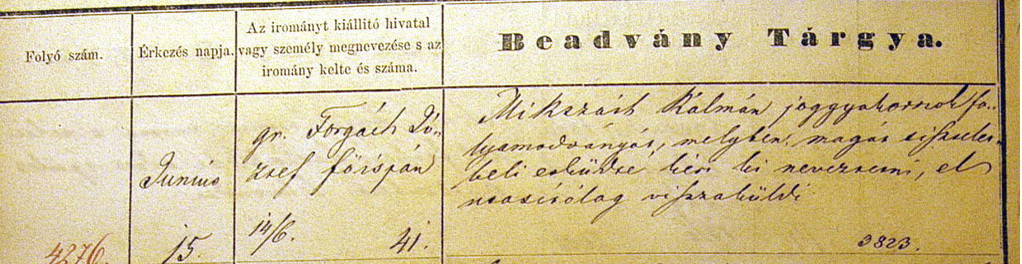 Folyó szám.
Érkezés napja.
Az irományt kiállitó hivatal
vagy személy megnevezése s az
iromány kelte és száma.
Beadvány Tárgya.
4276.
Junius
15.
gr. Forgách Jó-
zsef főispán
14/6. 41.
Mikszáth Kálmán joggyakornok fo-
lyamodványát, melyben magát
beli esküdté kéri ki neveztetni, el
utasitólag visszaküldi
3823.